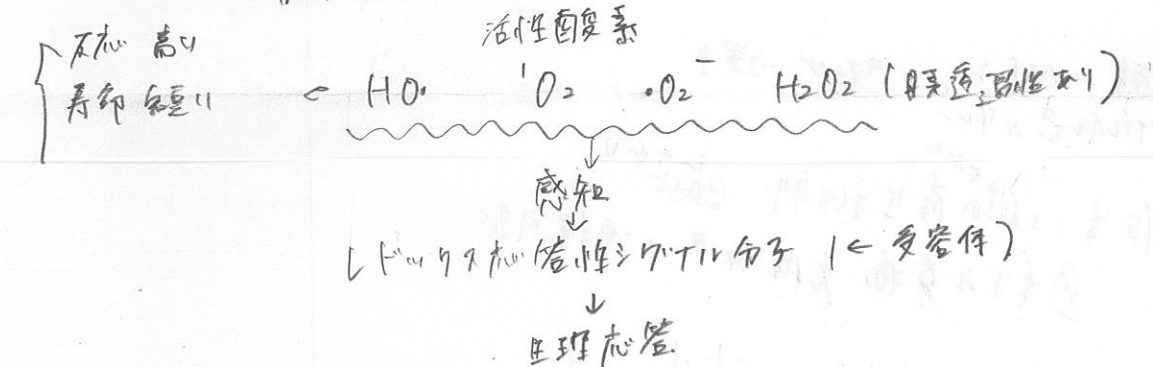 活性酸素
反応 高い
寿命 短い < HO・ ¹O₂ ・O₂⁻ H₂O₂ (膜透過性あり)
↓
感知
↓
レドックス応答性シグナル分子 (← 受容体)
↓
生理応答